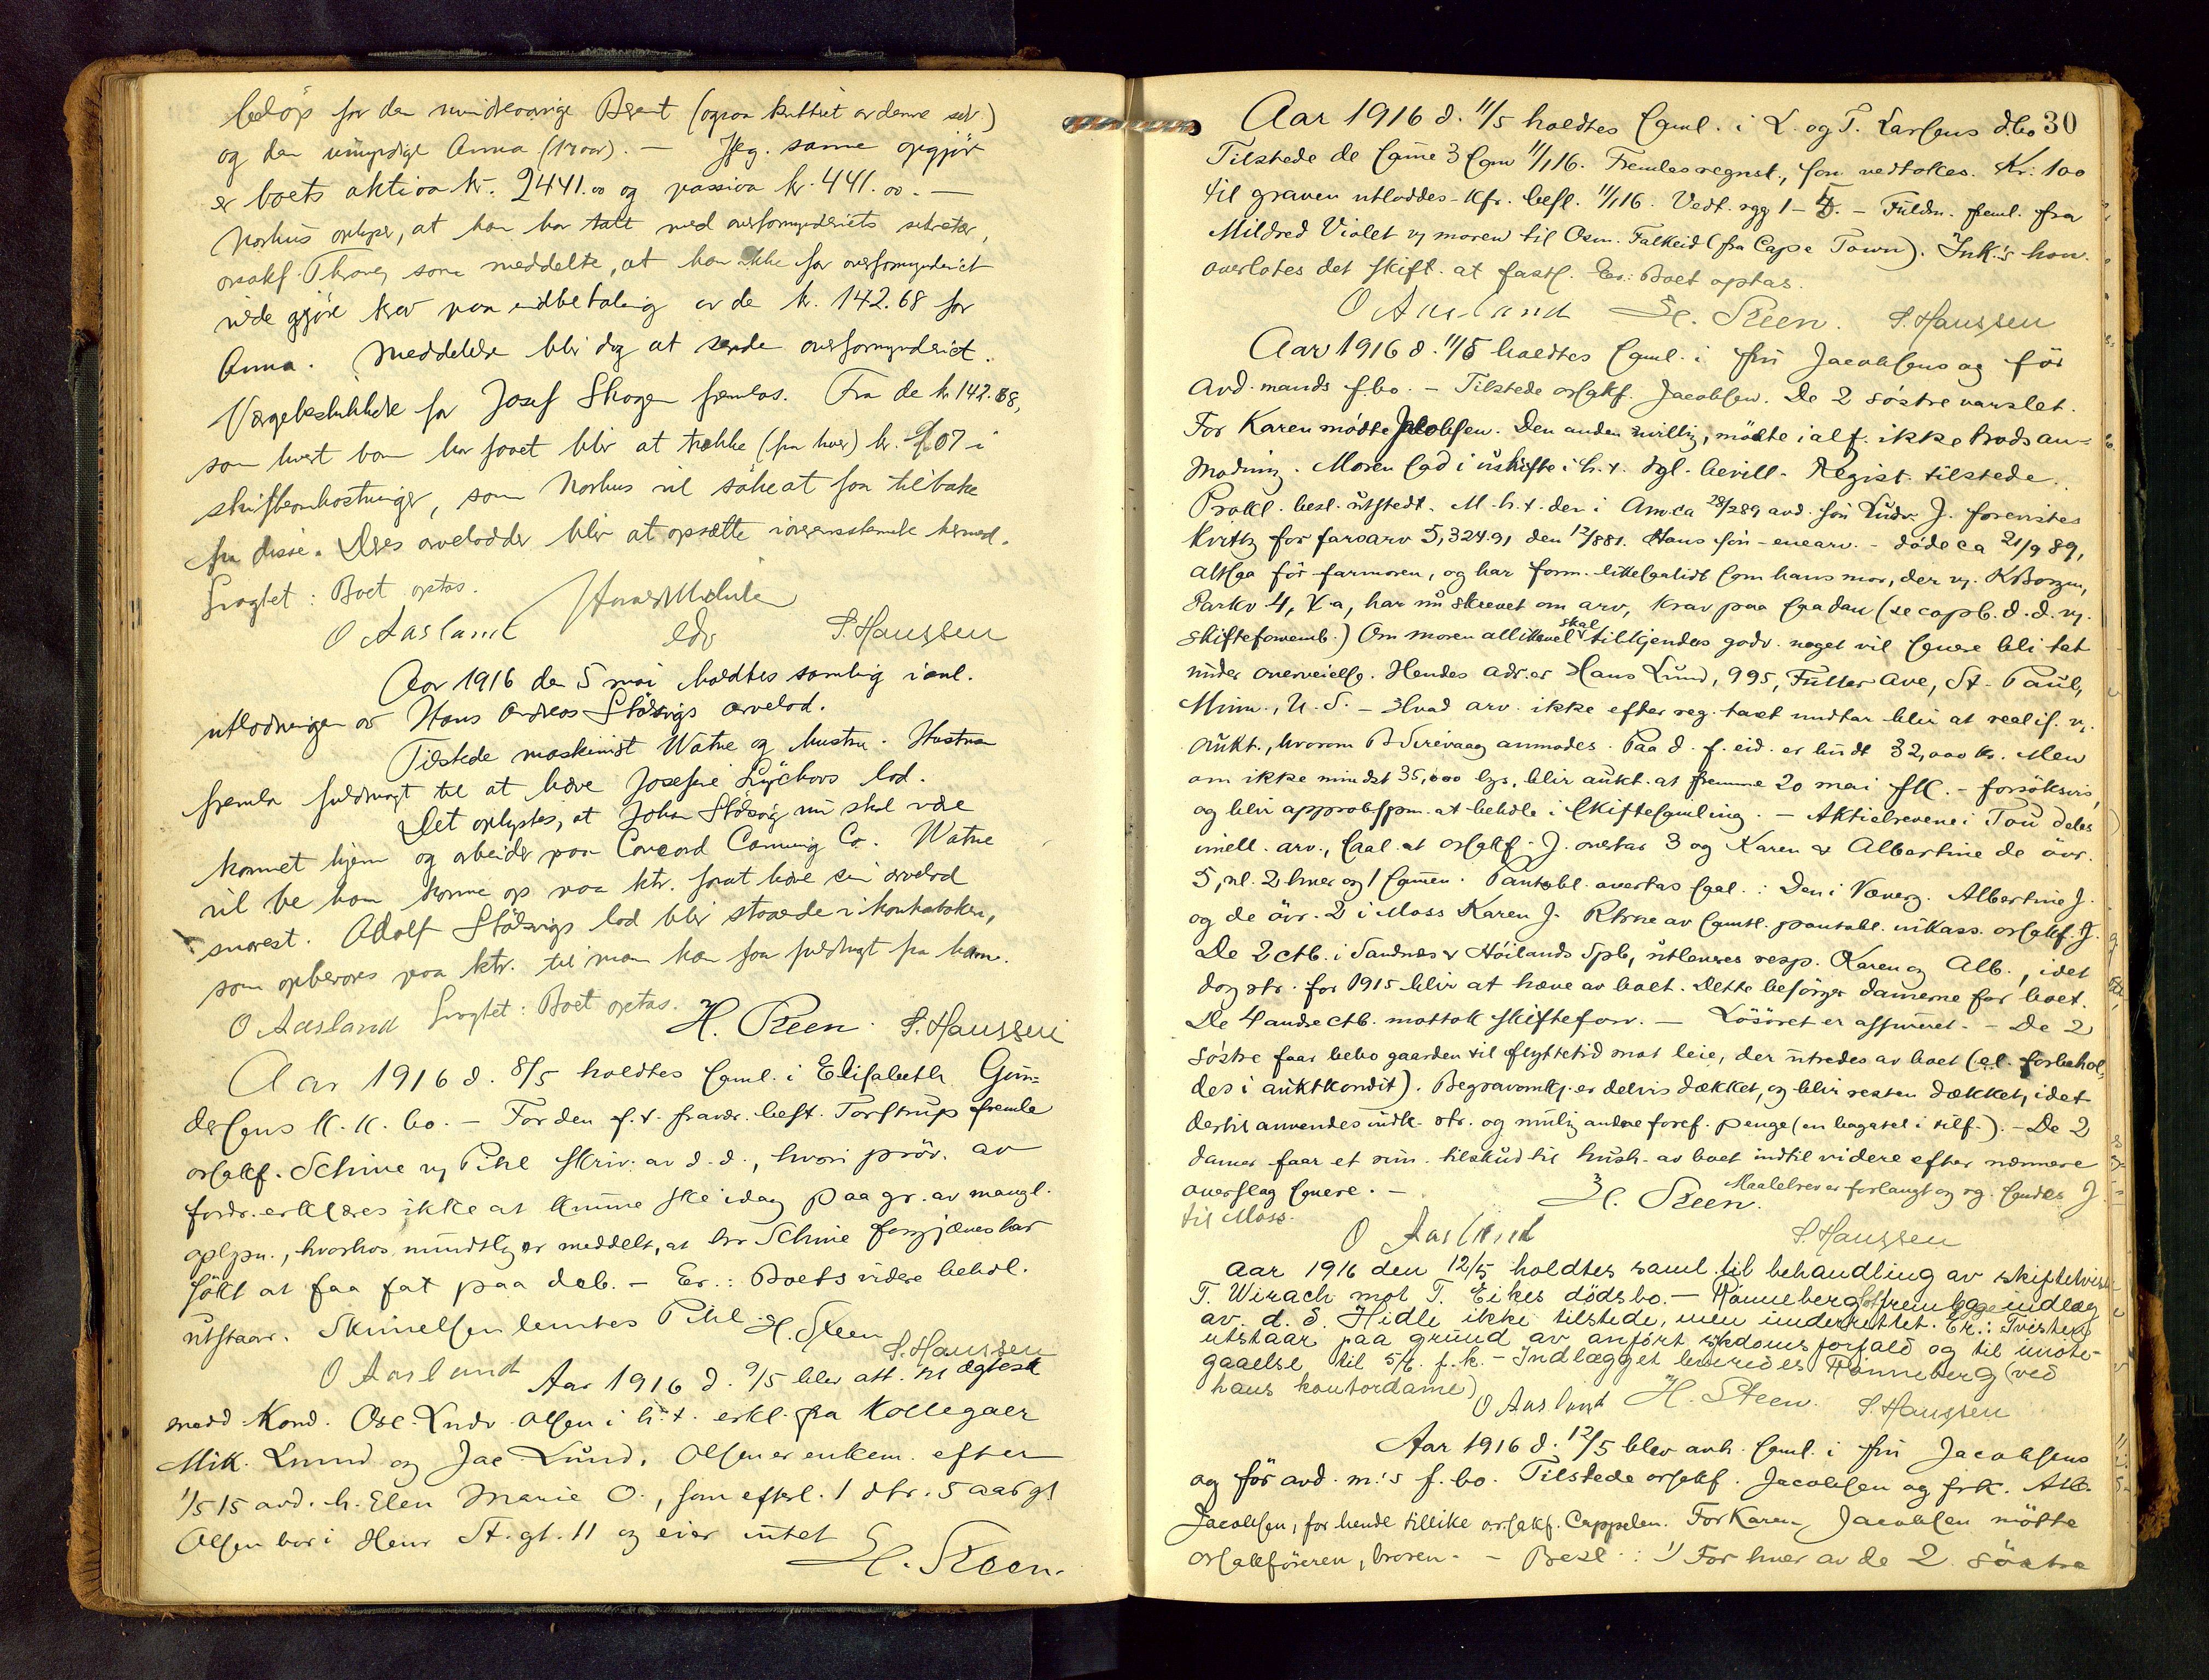 beløp for den mindreaarige Bernt (ogsaa kuttet av denne sed.)
og den umyndige Anna (17 aar). — Ifg. samme opgjør
er boets aktiva kr. 2441.00 og passiva kr. 441.00. —
Norhus oplyser, at han har talt med overformynderiets sekretær,
orsakf. Thorø, som meddelte, at han ikke for overformynderiet
vilde gjøre krav paa indbetaling av de kr. 142.68 for
Anna. Meddelelse blir dog at sende overformynderiet.
Værgebeskikkelse for Josef Skogen fremlas. Fra de kr 142.68,
som hvert barn har faaet blir at trække (fra hver) kr. 07 i
skifteomkostninger, som Norhus vil søke at faa tilbake
fra disse. Deres arvelodder blir at opsætte i overensstemmelse hermed.
Sragtet: Boet optas.
O Aasland S. Hanssen
Aar 1916 den 5 mai holdtes samling i anl.
utlodningen av Hans Andreas Stølsvigs arvelod.
Tilstede maskinist Watne og hustru. Hustruen
fremla fuldmagt til at hæve Josefine Lyckovs lod.
Det oplystes, at Johan Stølsvig nu skal være
kommet hjem og arbeider paa Concord Canning Co. Watne
vil be ham komme op paa ktr. forat hæve sin arvelod
snarest. Adolf Stølsvigs lod blir staaende i kontraboken,
som opbevares paa ktr. til man kan faa fuldmagt fra ham.
O Aasland Sragtet: Boet optas. H. Steen. S. Hanssen
Aar 1916 d. 8/5 holdtes saml. i Elisabeth Gun-
dersens k. k. bo. — For den f. t. fravær. best. Torstrup fremla
orsakf. Schine v/ Pihl skriv. av d. d., hvori prøv. av
fordr. erklæres ikke at kunne ske idag paa gr. av mangl.
oplysn., hvorhos mundtlig er meddelt, at hr Schine forgjæves har
søkt at faa fat paa deb. — Er.: Boets videre behdl.
utstaar. Skrivelsen levertes Pihl H. Steen S. Hanssen
O Aasland Aar 1916 d. 9/5 blev att. til ægtesk
med Kond. Osc. Ludv. Olsen i h. t. erkl. fra Kollegaer
Mik. Lund og Jac Lund. Olsen er enkem. efter
1/5 15 avd. h. Elen Marie O., som efterl. 1 dtr. 5 aar gl
Olsen bor i Henr St. gt. 11 og eier intet
H. Steen.
30
Aar 1916 d. 11/5 holdtes saml. i L. og T. Larsens d.bo
Tilstede de samme 3 som 11/1 16. Fremlas regnsk., som vedtokes. Kr. 100
til graven utloddes. Kfr. besl. 11/1 16. Vedt. rgg 1-5. — Fuldm. freml. fra
Mildred Violet v/ moren til Osm. Falkeid (fra Cape Town). Ink.'s hon.
overlotes det skift. at fasts. Er.: Boet optas.
O Aasland H. Steen. S. Hanssen
Aar 1916 d. 11/5 holdtes saml. i fru Jacobsens og før
avd. mands f.bo. — Tilstede orsakf. Jacobsen. De 2 søstre varslet.
For Karen mødte Jacobsen. Den anden uvillig, mødte ialf. ikke trods an-
modning. Moren sad i uskifte i h. t. kgl. bevill. Regist. tilstede.
Prokl. besl. utstedt. M. h. t. den i Am.ca 28/2 89 avd. søn Ludv. J. forevistes
kvittg for farsarv 5,324.91 den 12/8 81. Hans søn – enearv. – døde ca 21/9 89,
altsaa før farmoren, og har form. likesaalidt som hans mor, der v/ K Borgen,
Parkv 4, X.a, har nu skrevet om arv, krav paa saadan (se copb. d. d. v/
skifteforvemb.) Om moren allikevel skal tilkjendes godv. noget vil senere bli tat
under overveielse. Hendes adr. er Hans Lund, 995, Fuller Ave, St. Paul,
Minn., U. S. — Hvad arv. ikke efter reg. takst undtar blir at realis. v/
aukt., hvorom B Sirevaag anmodes. Paa d. f. eid. er budt 32,000 kr. Men
om ikke mindst 35,000 bys, blir aukt. at fremme 20 mai fk. – forsøksvis,
og blir approbspm. at behdle i skiftesamling. — Aktiebrevene i Tou deles
imell. arv., saal. at orsakf. J. overtar 3 og Karen & Albertine de øvr.
5, nl. 2 hver og 1 sammen. Pantobl. overtas saal.: Den i Væverg. Albertine J.
og de øvr. 2 i Moss Karen J. Rtrne av samtl. pantobl. inkass. orsakf. J.
De 2 ctb. i Sandnes & Høilands Spb, utleveres resp. Karen og Alb., idet
dog rtr. for 1915 blir at hæve av boet. Dette besørger damerne for boet.
De 4 andre ctb. mottok skifteforv. — Løsøret er assureret. — De 2
søstre faar bebo gaarden til flyttetid mot leie, der utredes av boet (al. forbehol-
des i auktkondit). Begravomk. er delvis dækket, og blir resten dækket, idet
dertil anvendes indk. rtr. og mulig andre foref. penge (en bagatel i tilf.). — De 2
damer faar et rim. tilskud til hush. av boet indtil videre efter nærmere
overslag senere. — H. Steen. Maalebrev er forlangt og rg. sendes J.
til Moss.
O Aasland S. Hanssen
Aar 1916 den 12/5 holdtes saml. til behandling av skiftetvist
T. Wirach mot T. Eikes dødsbo. — Rønneberg lot fremlægge indlæg
av. d. d. Hidle ikke tilstede, men underrettet. Er.: Tvisten
utstaar paa grund av anført sykdomsforfald og til imøte-
gaaelse til 5/6. f. k. — Indlægget leveredes Rønneberg (ved
hans kontordame)
O Aasland H. Steen. S. Hanssen
Aar 1916 d. 12/5 blev avh. saml. i fru Jacobsens
og før avd. m.'s f. bo. Tilstede orsakf. Jacobsen og frk. Alb.
Jacobsen, for hende tillike orsakf. Cappelen. For Karen Jacobsen møtte
orsakføreren, broren. — Besl.: 1) For hver av de 2 søstre